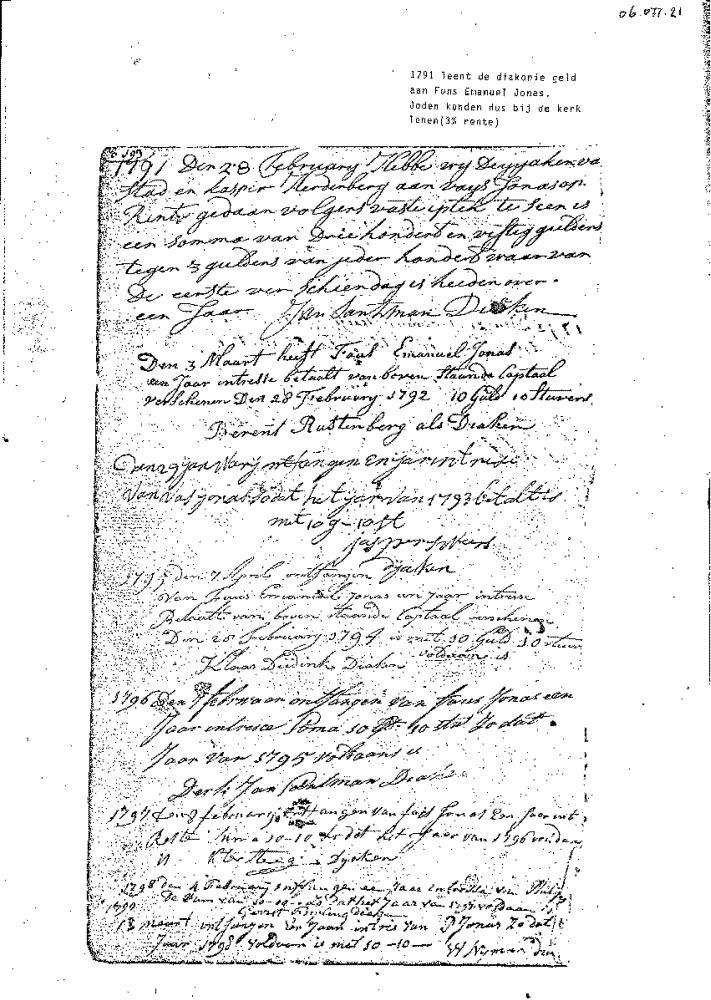 06.077.21
1791 leent de diakonie geld
aan Fons Emanuel Jonas.
Joden konden dus bij de kerk
lenen(3% rente)
1791 Den 28 February Hebbe wy
Stad en kaspir Herdenberg aan vays Jonas op
Rinte gedaan volgens vaste
een somma van Driehondert en vijftig guldens
tegen 3 guldens van jeder hondert waar van
De eerste ver schiendag is heeden over
een Jaar Jan Santman Diaken
Den 3 Maart heeft Faus Emanuel Jonas
een Jaar intresse betaalt van boven staande Captaal
verschenen Den 28 February 1792 10 Guld 10 Stuvers
Berent Rustenberg als Diaken
Den 29 januarij ontfangen En jar intrisi
van vas jonas sodat het jar van 1793 betalt is
met 10 g-10 st
Diaken
1795 den 7 April ontfangen
van Faus Emanuel Jonas en jaar intrise
Betaalt van boven staande Captaal
Den 28 February 1794 is met 10 Guld 10 stuver
voldaan is
Klaas Diaken
1796 Den Februwaar ontfangen van faus Jonas een
Jaar intresse Soma 10 Gl- 10 stv Zo dat
Jaar van 1795 voldaan is
Jan Santman Diaken
1797 den 8 februarij ontfangen van fais Jonas Een Jaer int
10-10 Zo dat het Jaer van 1796 voldaen
is Dyaken
1798 den 4 February ontfangen een Jaar van
De Som van 10-10 Zo dat het Jaar van 1797 voldaan is
1799
13 maart ontfangen Een Jaar intres van P Jonas Zo dat
Jaar 1798 voldaan is met 10-10